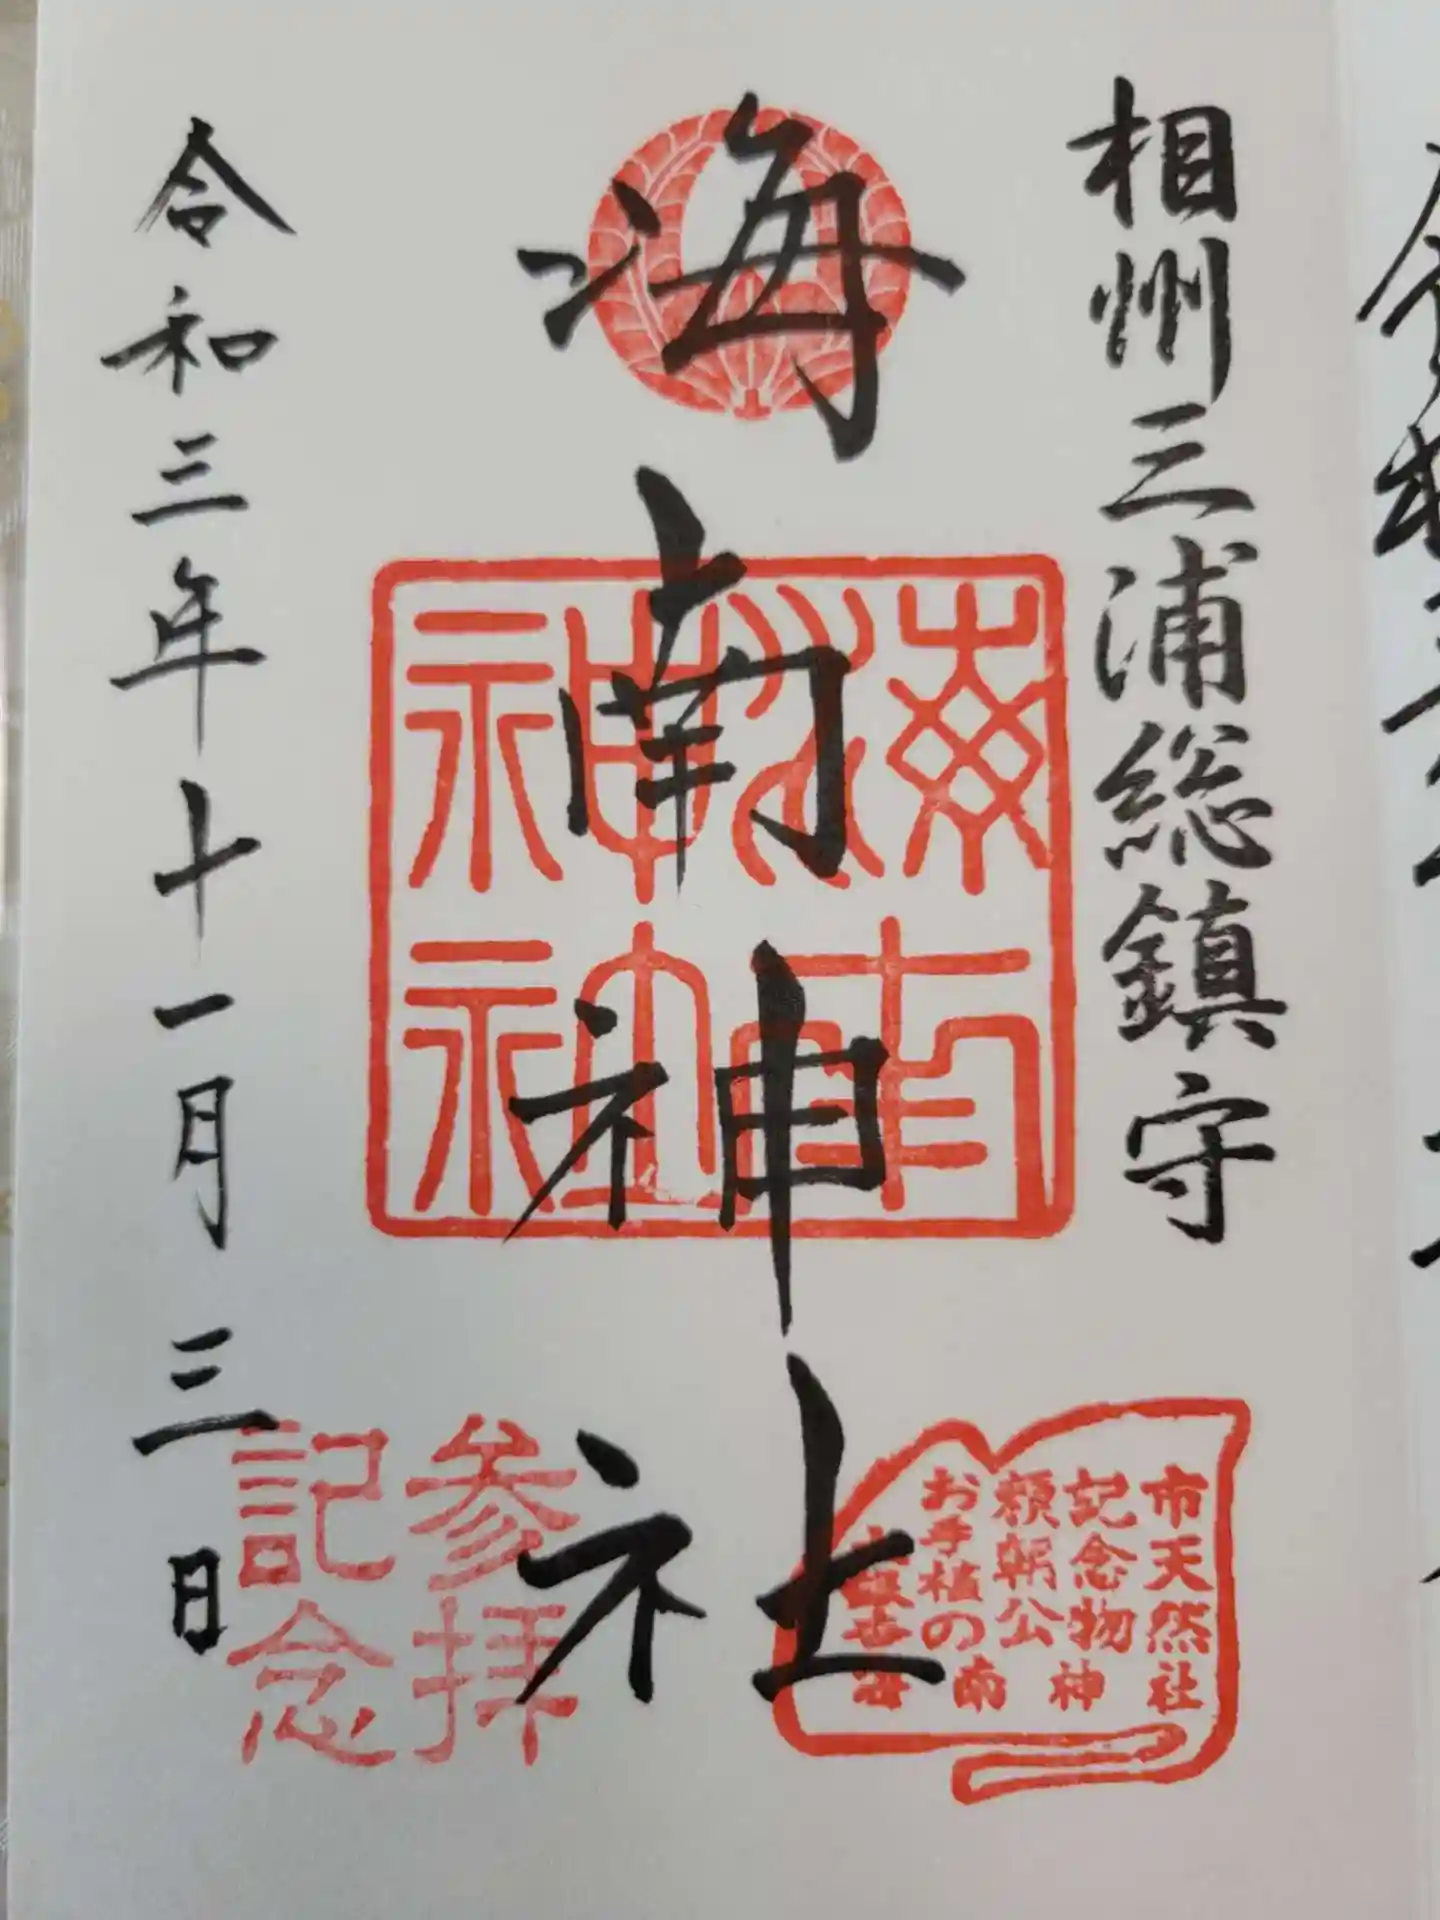 相州三浦総鎮守
海南神社
海南神社
市天然
記念物
頼朝公
お手植の
海南神社
参拝
記念
令和三年十一月三日